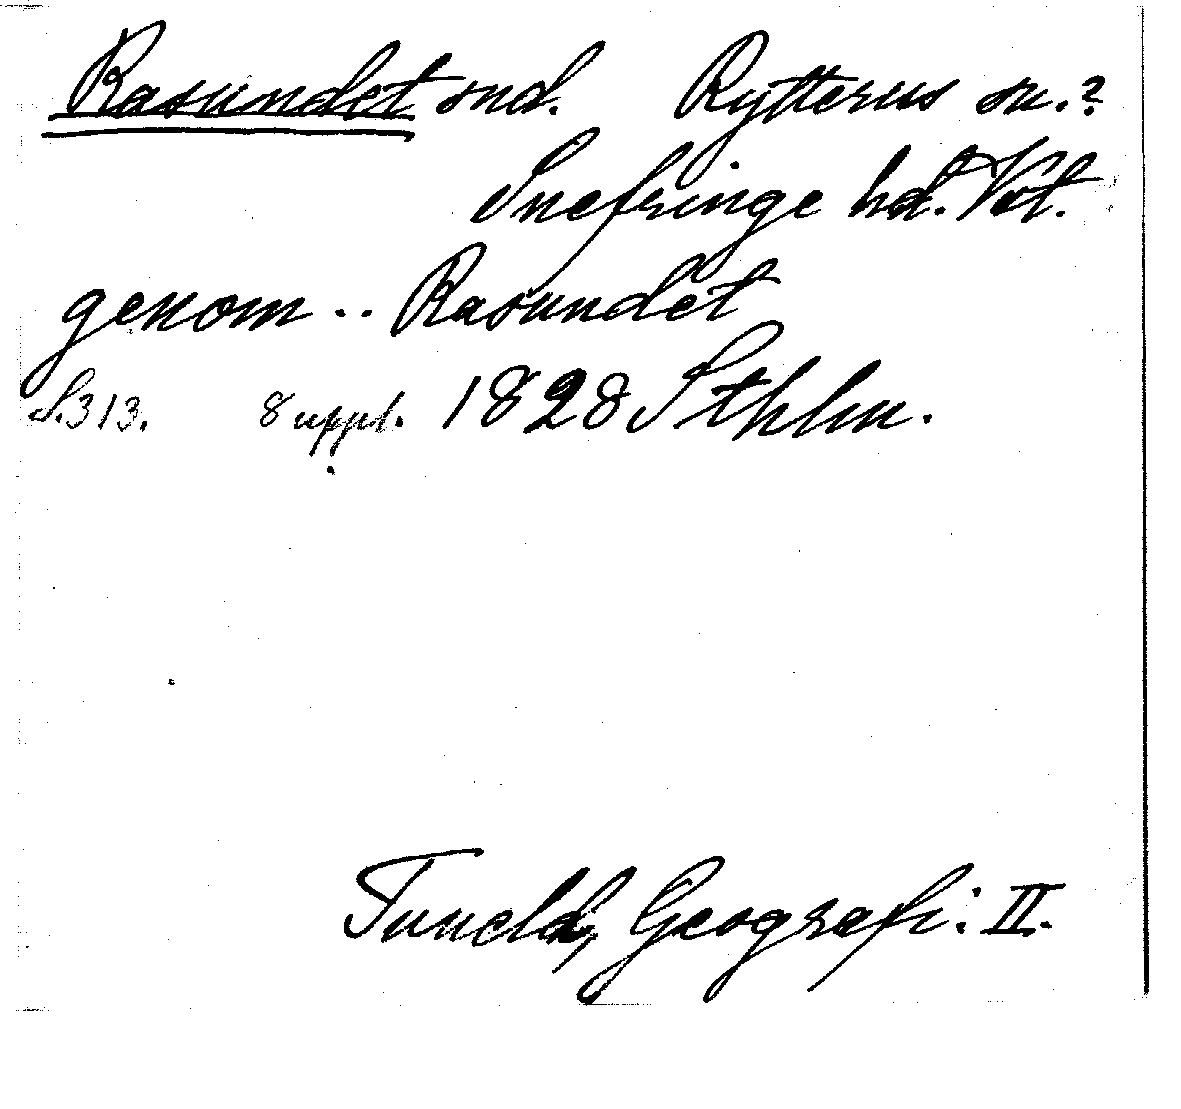 Rasundet snd. Rytterns sn.?
Snefringe hd. Vstl.
genom .. Rasundet
S. 313. 8 uppl. 1828 Sthlm.
Tuneld, Geografi: II.